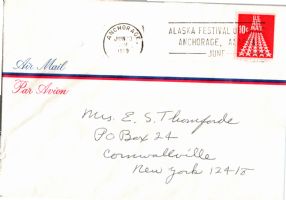 ANCHORAGE
ALASKA FESTIVAL O
ANCHORAGE, A
JUNE
10c
Air Mail
Par Avion
Mrs. E. S. Thomforde
PO Box 24
Cornwallville
New York 12418